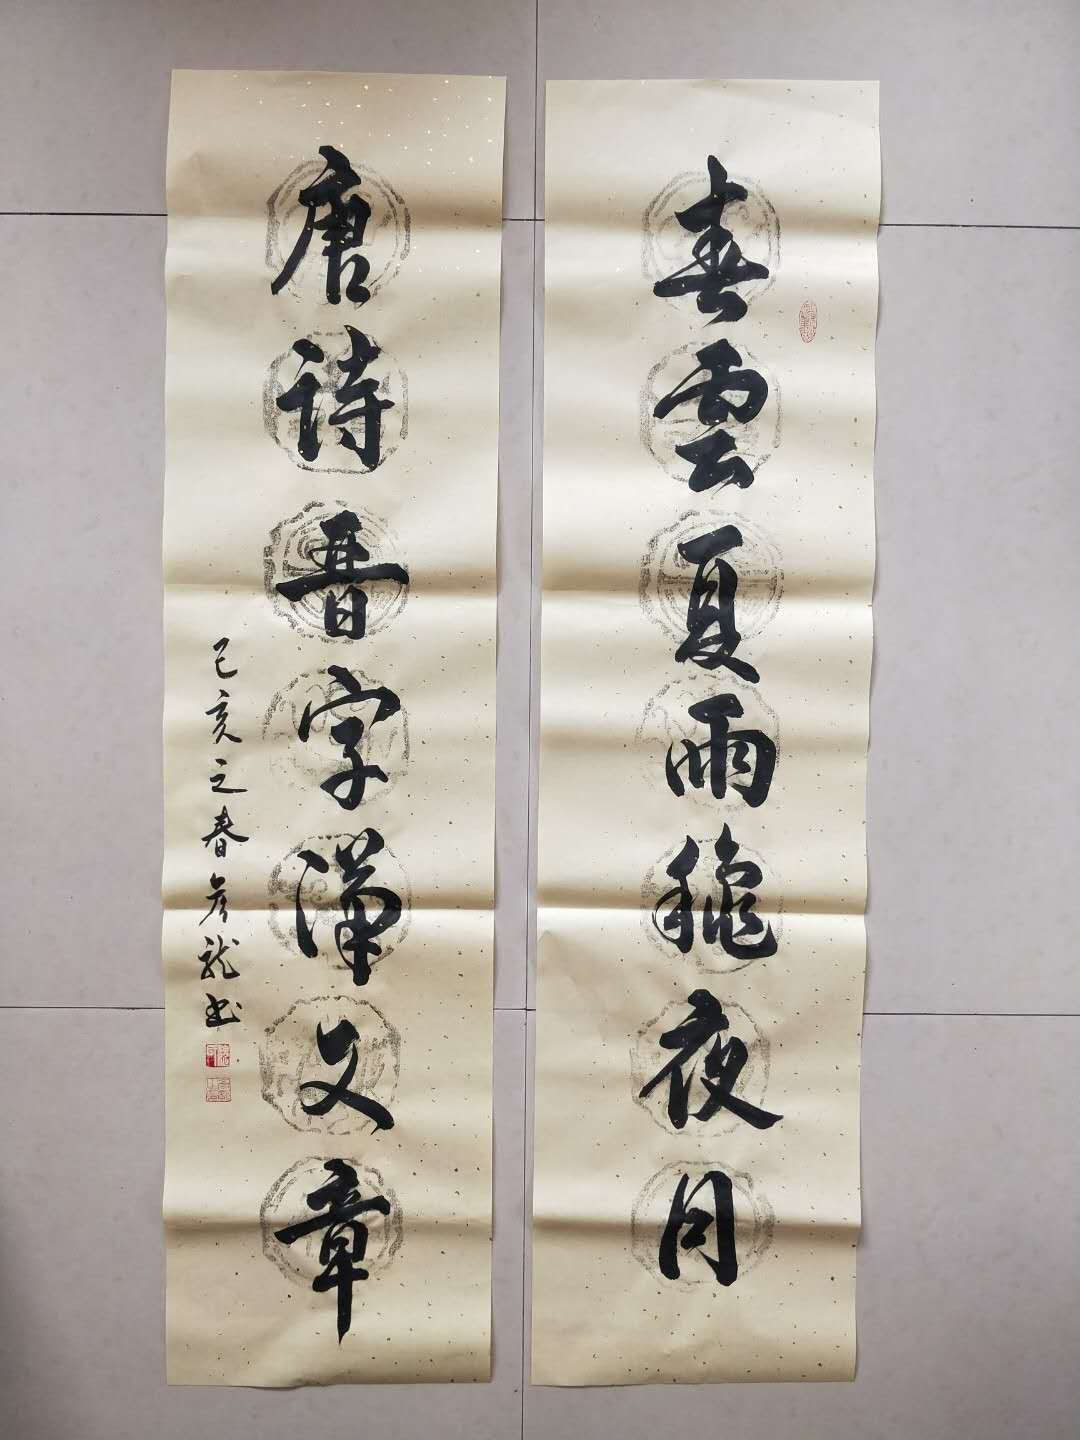 春雲夏雨龝夜月
唐詩晋字漢文章
己亥之春彦龍书